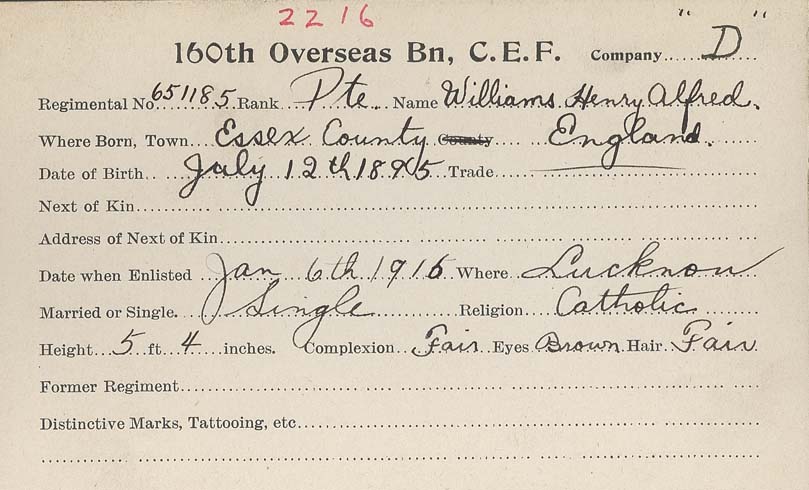 2216
160th Overseas Bn, C.E.F. Company "D"
Regimental No. 651185 Rank Pte. Name Williams. Henry Alfred.
Where Born, Town Essex County County England.
Date of Birth July 12th 1895 Trade
Next of Kin
Address of Next of Kin
Date when Enlisted Jan 6th 1916 Where Lucknow
Married or Single. Single Religion Catholic
Height 5 ft 4 inches. Complexion Fair Eyes Brown Hair Fair
Former Regiment
Distinctive Marks, Tattooing, etc